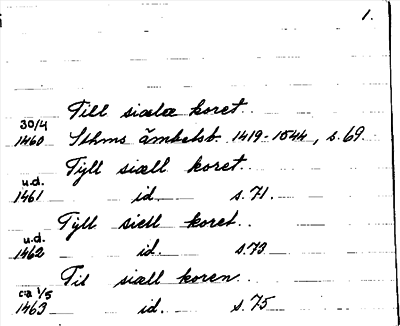 1.
Till siælæ koret.
30/4
1460 Sthms ämbetsb. 1419-1544, s.69
Tÿll siæll koret.
u.d.
1461 id. s.71.
Tÿll siell koret.
u.d.
1462 id. s.73
Til siæll koren
ca 1/5
1463 id. s.75